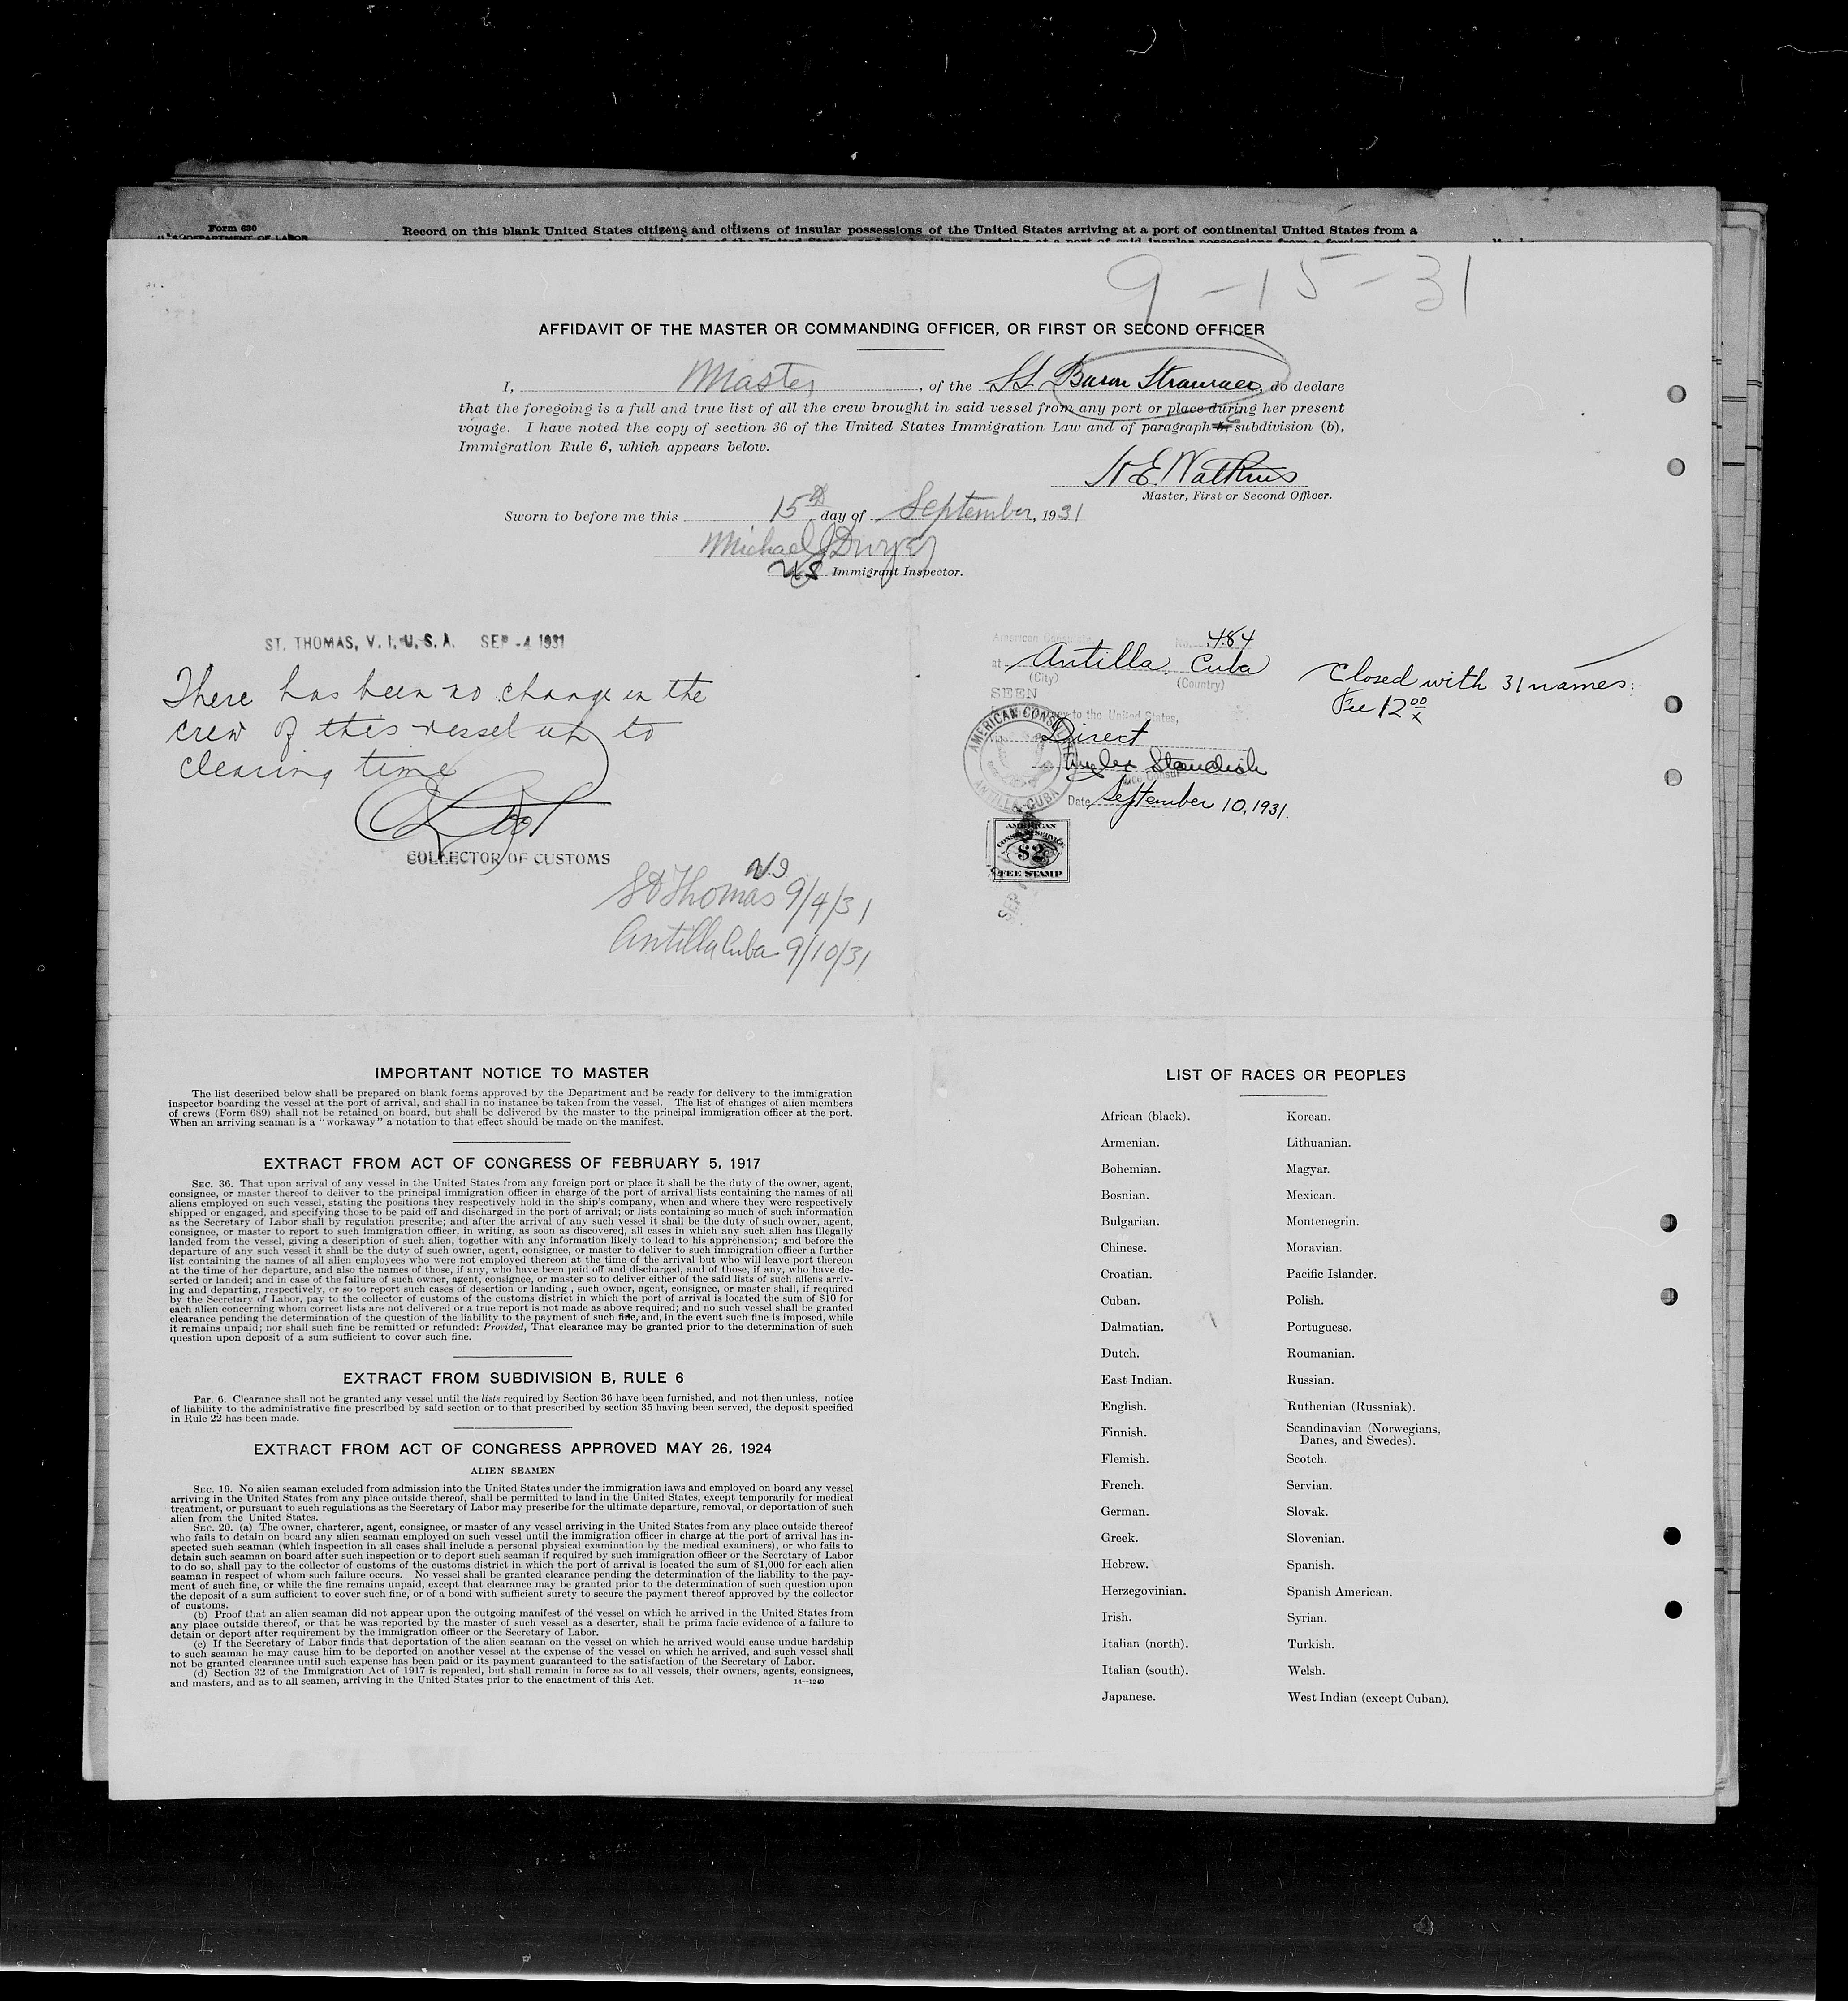 Form 630
Record on this blank United States citizens and citizens of insular possessions of the United States arriving at a port of continental United States from a
9-15-31
AFFIDAVIT OF THE MASTER OR COMMANDING OFFICER, OR FIRST OR SECOND OFFICER
I, Master, of the SS. Baron , do declare
that the foregoing is a full and true list of all the crew brought in said vessel from any port or place during her present
voyage. I have noted the copy of section 36 of the United States Immigration Law and of paragraph subdivision (b),
Immigration Rule 6, which appears below.
E. Watkins
Master, First or Second Officer.
Sworn to before me this 15th day of September, 1931
Michael J Dwyer
US Immigrant Inspector.
ST. THOMAS, V. I. U. S. A. SEP -4 1931
There has been no change in the
crew of this vessel up to
clearing time
COLLECTOR OF CUSTOMS
V.I
St Thomas 9/4/31
Antilla Cuba 9/10/31
American Consulate, No. 484
at Antilla, Cuba
(City) (Country)
SEEN
to the United States,
Direct
Standish
Vice Consul
Date September 10, 1931.
AMERICAN CONSULATE
ANTILLA, CUBA
AMERICAN
CONSULAR SERVICE
$2
FEE STAMP
SEP
Closed with 31 names:
Fee $2.00
IMPORTANT NOTICE TO MASTER
The list described below shall be prepared on blank forms approved by the Department and be ready for delivery to the immigration
inspector boarding the vessel at the port of arrival, and shall in no instance be taken from the vessel. The list of changes of alien members
of crews (Form 689) shall not be retained on board, but shall be delivered by the master to the principal immigration officer at the port.
When an arriving seaman is a "workaway" a notation to that effect should be made on the manifest.
EXTRACT FROM ACT OF CONGRESS OF FEBRUARY 5, 1917
SEC. 36. That upon arrival of any vessel in the United States from any foreign port or place it shall be the duty of the owner, agent,
consignee, or master thereof to deliver to the principal immigration officer in charge of the port of arrival lists containing the names of all
aliens employed on such vessel, stating the positions they respectively hold in the ship's company, when and where they were respectively
shipped or engaged, and specifying those to be paid off and discharged in the port of arrival; or lists containing so much of such information
as the Secretary of Labor shall by regulation prescribe; and after the arrival of any such vessel it shall be the duty of such owner, agent,
consignee, or master to report to such immigration officer, in writing, as soon as discovered, all cases in which any such alien has illegally
landed from the vessel, giving a description of such alien, together with any information likely to lead to his apprehension; and before the
departure of any such vessel it shall be the duty of such owner, agent, consignee, or master to deliver to such immigration officer a further
list containing the names of all alien employees who were not employed thereon at the time of the arrival but who will leave port thereon
at the time of her departure, and also the names of those, if any, who have been paid off and discharged, and of those, if any, who have de-
serted or landed; and in case of the failure of such owner, agent, consignee, or master so to deliver either of the said lists of such aliens arriv-
ing and departing, respectively, or so to report such cases of desertion or landing , such owner, agent, consignee, or master shall, if required
by the Secretary of Labor, pay to the collector of customs of the customs district in which the port of arrival is located the sum of $10 for
each alien concerning whom correct lists are not delivered or a true report is not made as above required; and no such vessel shall be granted
clearance pending the determination of the question of the liability to the payment of such fine, and, in the event such fine is imposed, while
it remains unpaid; nor shall such fine be remitted or refunded: Provided, That clearance may be granted prior to the determination of such
question upon deposit of a sum sufficient to cover such fine.
EXTRACT FROM SUBDIVISION B, RULE 6
Par. 6. Clearance shall not be granted any vessel until the lists required by Section 36 have been furnished, and not then unless, notice
of liability to the administrative fine prescribed by said section or to that prescribed by section 35 having been served, the deposit specified
in Rule 22 has been made.
EXTRACT FROM ACT OF CONGRESS APPROVED MAY 26, 1924
ALIEN SEAMEN
SEC. 19. No alien seaman excluded from admission into the United States under the immigration laws and employed on board any vessel
arriving in the United States from any place outside thereof, shall be permitted to land in the United States, except temporarily for medical
treatment, or pursuant to such regulations as the Secretary of Labor may prescribe for the ultimate departure, removal, or deportation of such
alien from the United States.
SEC. 20. (a) The owner, charterer, agent, consignee, or master of any vessel arriving in the United States from any place outside thereof
who fails to detain on board any alien seaman employed on such vessel until the immigration officer in charge at the port of arrival has in-
spected such seaman (which inspection in all cases shall include a personal physical examination by the medical examiners), or who fails to
detain such seaman on board after such inspection or to deport such seaman if required by such immigration officer or the Secretary of Labor
to do so, shall pay to the collector of customs of the customs district in which the port of arrival is located the sum of $1,000 for each alien
seaman in respect of whom such failure occurs. No vessel shall be granted clearance pending the determination of the liability to the pay-
ment of such fine, or while the fine remains unpaid, except that clearance may be granted prior to the determination of such question upon
the deposit of a sum sufficient to cover such fine, or of a bond with sufficient surety to secure the payment thereof approved by the collector
of customs.
(b) Proof that an alien seaman did not appear upon the outgoing manifest of the vessel on which he arrived in the United States from
any place outside thereof, or that he was reported by the master of such vessel as a deserter, shall be prima facie evidence of a failure to
detain or deport after requirement by the immigration officer or the Secretary of Labor.
(c) If the Secretary of Labor finds that deportation of the alien seaman on the vessel on which he arrived would cause undue hardship
to such seaman he may cause him to be deported on another vessel at the expense of the vessel on which he arrived, and such vessel shall
not be granted clearance until such expense has been paid or its payment guaranteed to the satisfaction of the Secretary of Labor.
(d) Section 32 of the Immigration Act of 1917 is repealed, but shall remain in force as to all vessels, their owners, agents, consignees,
and masters, and as to all seamen, arriving in the United States prior to the enactment of this Act.
14—1240
LIST OF RACES OR PEOPLES
African (black).
Armenian.
Bohemian.
Bosnian.
Bulgarian.
Chinese.
Croatian.
Cuban.
Dalmatian.
Dutch.
East Indian.
English.
Finnish.
Flemish.
French.
German.
Greek.
Hebrew.
Herzegovinian.
Irish.
Italian (north).
Italian (south).
Japanese.
Korean.
Lithuanian.
Magyar.
Mexican.
Montenegrin.
Moravian.
Pacific Islander.
Polish.
Portuguese.
Roumanian.
Russian.
Ruthenian (Russniak).
Scandinavian (Norwegians,
Danes, and Swedes).
Scotch.
Servian.
Slovak.
Slovenian.
Spanish.
Spanish American.
Syrian.
Turkish.
Welsh.
West Indian (except Cuban).